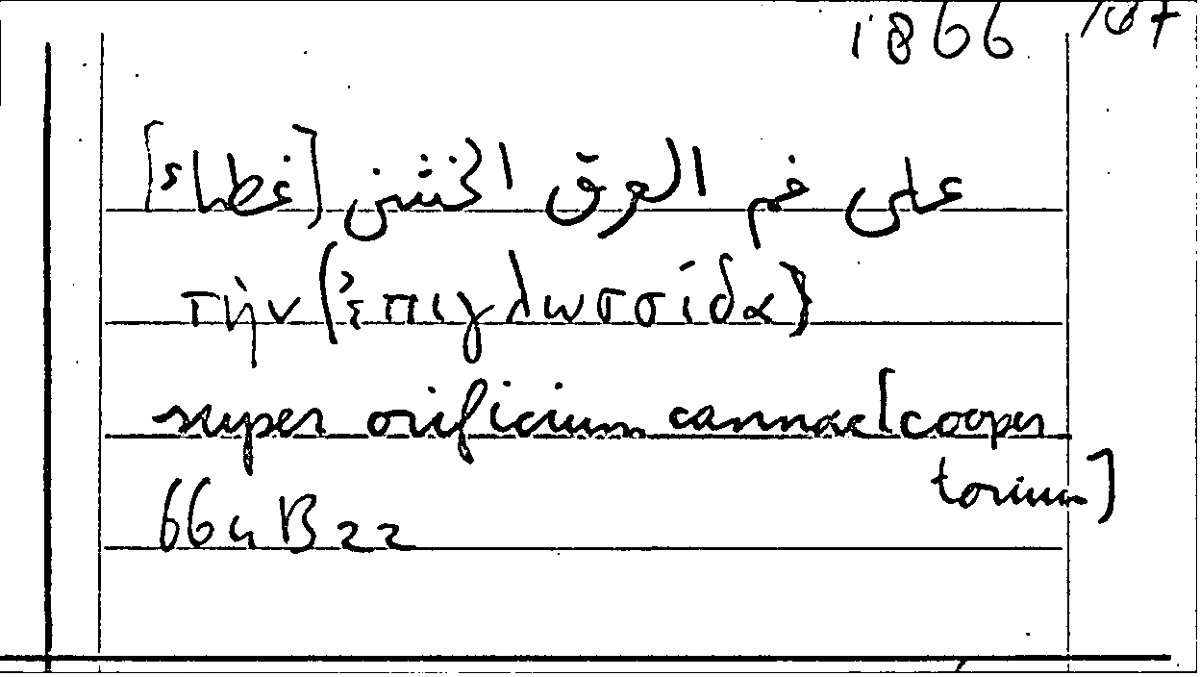 1866 167
على فم العرق الخشن [غطاء]
τὴν (ἐπιγλωσσίδα)
super orificium cannae [cooper
torium]
664B22